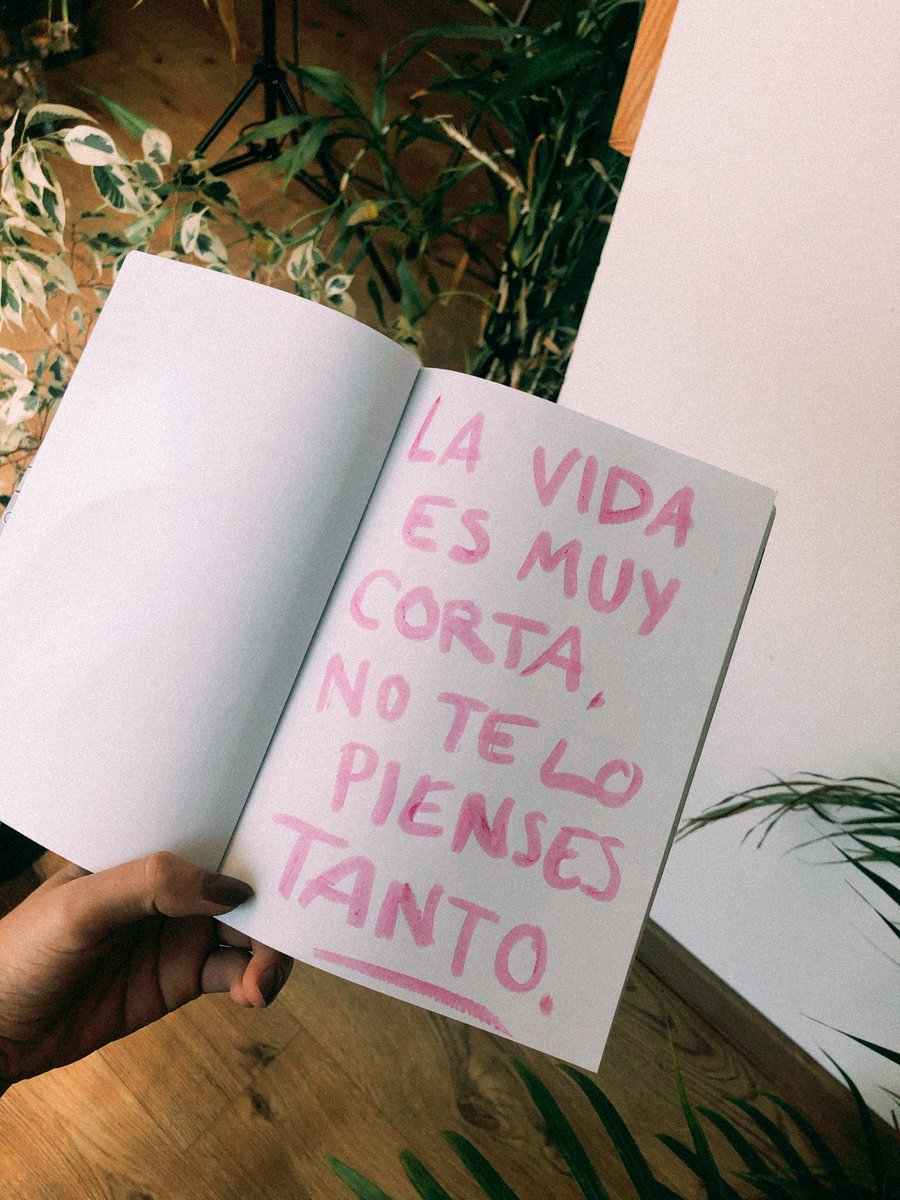 LA VIDA
ES MUY
CORTA.
NO TE LO
PIENSES
TANTO.